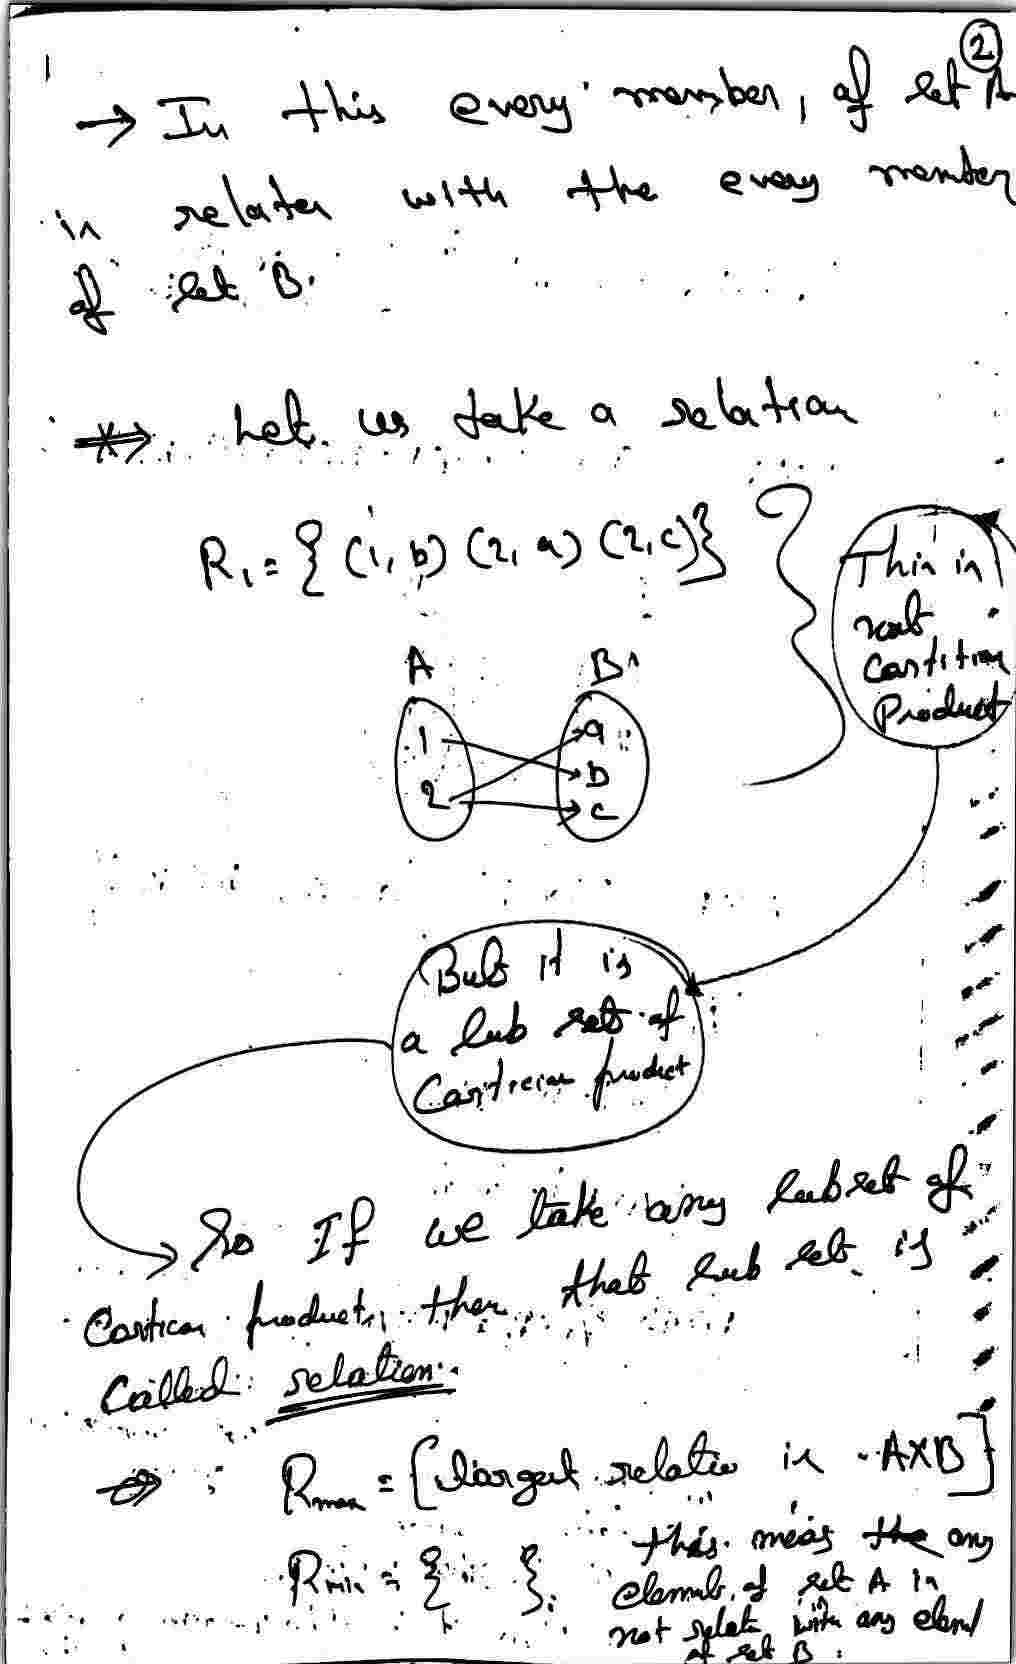 2
→ In this every member, of set A
in relater with the every member
of set B.
Let us take a relation
R₁ = { (1, b) (2, a) (2, c) }
This in
not
Cartitian
Product
A B
1 a
2 b
c
But it is
a sub set of
Carticion product
→ So If we take any subset of
Cartican product, then that sub set is
Called relation.
Rmax = [largest relatio in A×B]
Rmin = { }.
this meas the any
elemnt of set A in
not relate with any elemt
of set B.